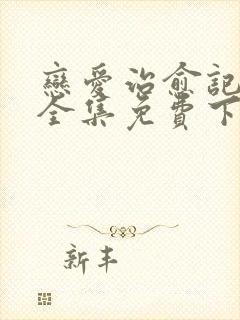 戀愛治愈記
全集免費下
新丰